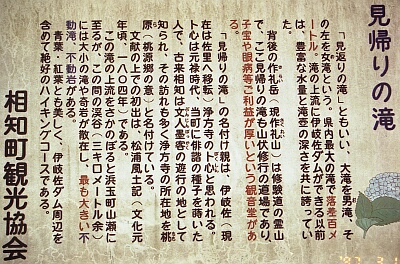 見帰りの滝
「見返りの滝」ともいい、大滝を男滝、そ
の左を女滝という。県内最大の滝で落差百メ
ートル。滝の上流に伊岐佐ダムができる以前
は、豊富な水量と滝壺の深さを共に誇ってい
た。
背後の作礼岳（現作礼山）は修験道の霊山
で、ここ見帰りの滝も山伏修行の道場であり、
子宝や眼病等ご利益が厚いという観音堂があ
る。
「見帰りの滝」の名付け親は、伊岐佐（現
在は佐里へ移転）浄方寺の卜心と思われる。
卜心は元禄時代、当町に俳諧の種子を蒔いた
人で、古来相知は文人墨客の遊行の地として
知られ、その訪れも多く浄方寺の所在地を桃
原（桃源郷の意）と名付けている。
文献の上での初出は、松浦風土記（文化元
年頃、一八〇四年）である。
この滝の上流をさかのぼると浜玉町山瀬に
至るが、この間の渓谷（三キロメートル余）
には大小の滝や奇岩が散在し、最も大きい不
動滝、不動岩がある。
青葉・紅葉とも美しく、伊岐佐ダム周辺を
含めて絶好のハイキングコースである。
相知町観光協会
'97 3 1